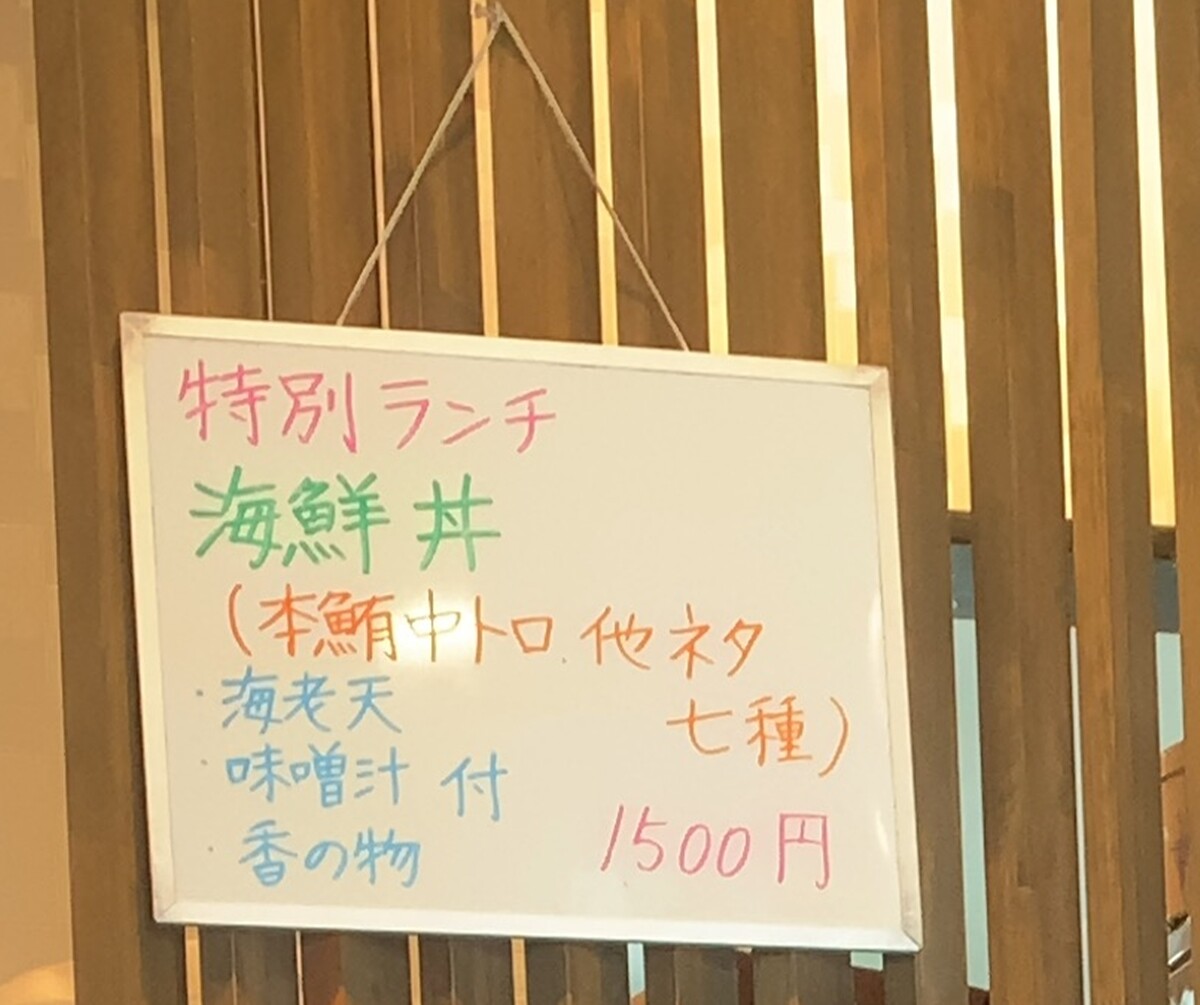 特別ランチ
海鮮丼
(本鮪中トロ、他ネタ
七種)
・海老天
・味噌汁 付
・香の物
1500円